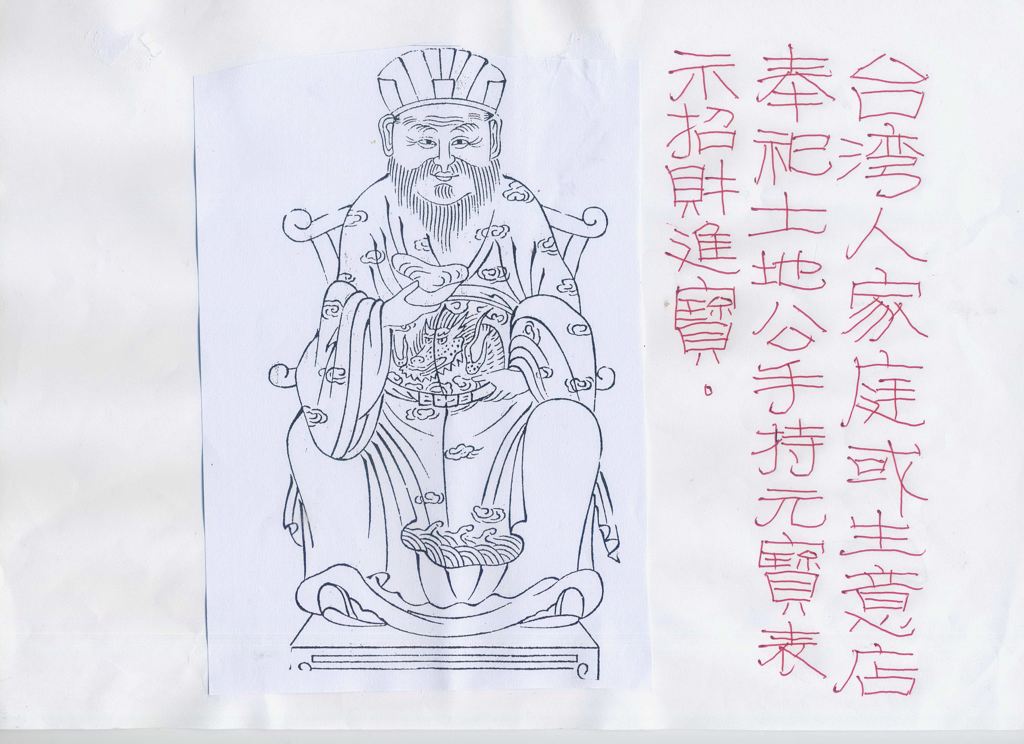 台湾人家庭或生意店
奉祀土地公手持元寶表
示招財進寶.